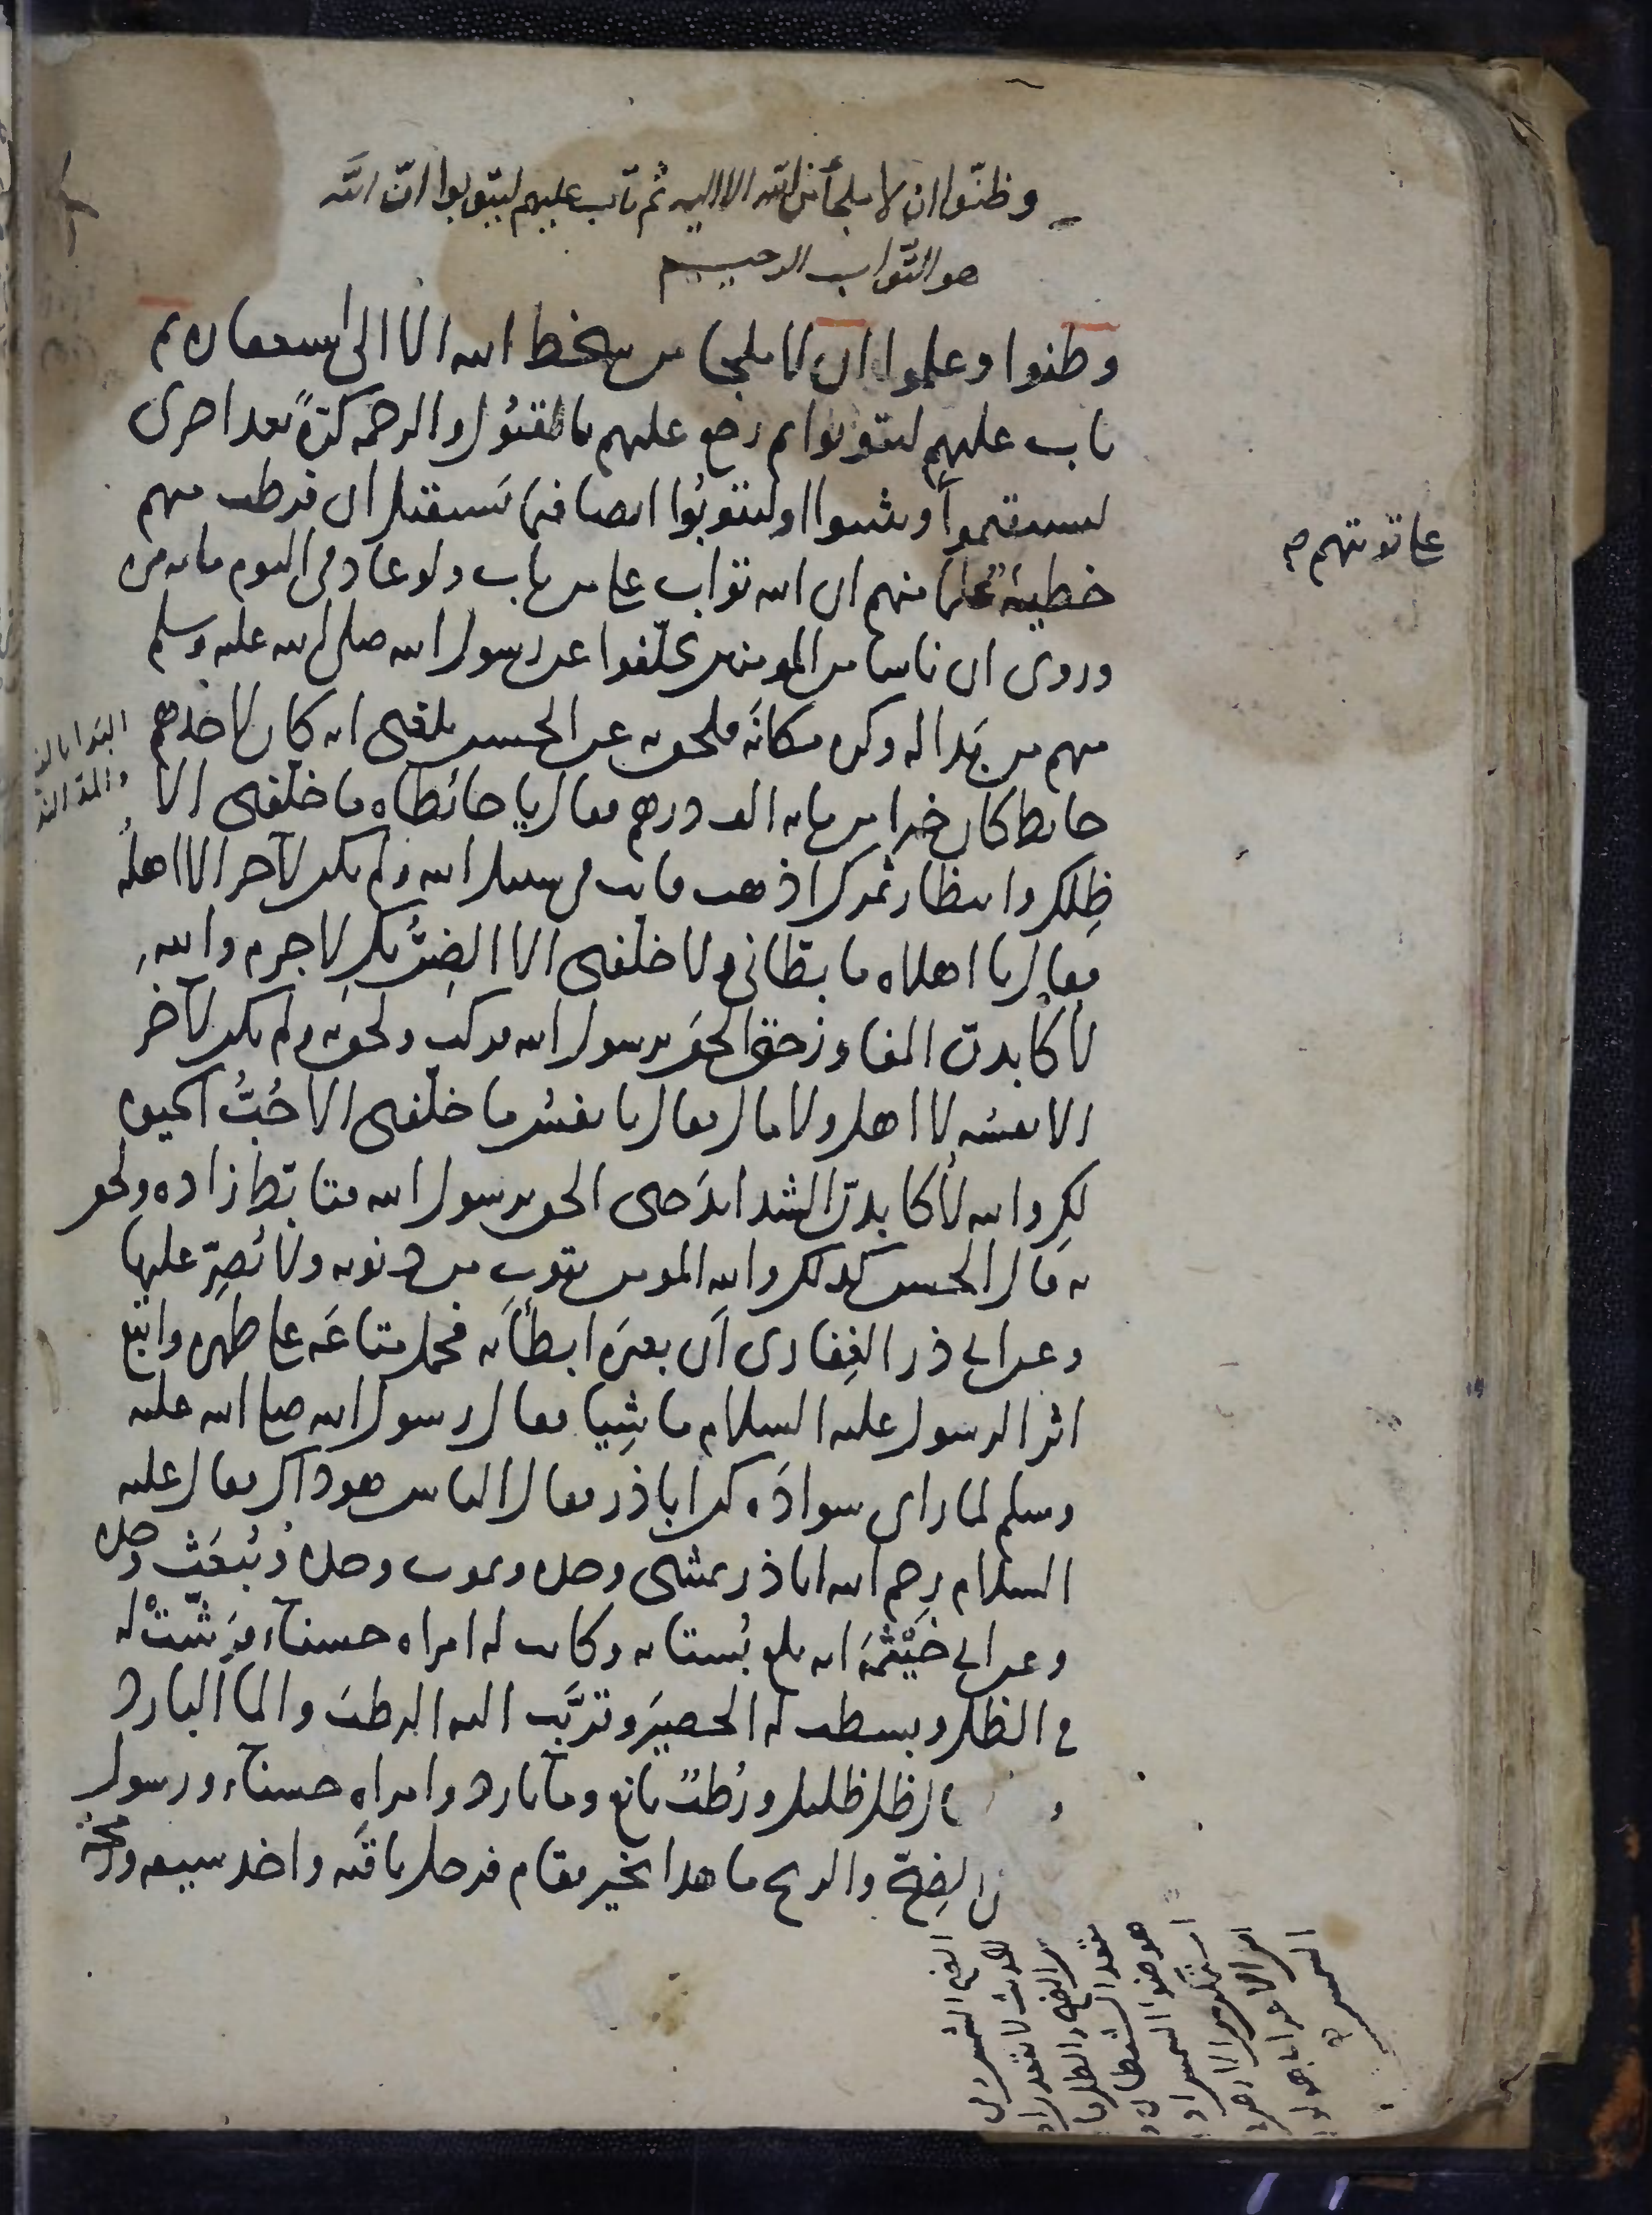 وظنّوا ان لا ملجأ من الله الا اليه ثم تاب عليهم ليتوبوا انّ الله
هو التّواب الرحيم
وظنوا وعلموا ان لا ملجا من سخط الله الا الى استغفاره ثم
تاب عليهم ليتوبوا ثم رجع عليهم بالقبُول والرحمه كرّةً بعد اخرى
ليستقيموا ويثبتوا او ليتوبُوا ايضا فيما يَستقبل ان فرطت منهم
خطيئة علما منهم ان الله تواب على من تاب ولو عاد في اليوم مايه مره
على توبتهم صح
وروى ان ناسا من المومنين تخلّفوا عن رسول الله صلى الله عليه وسلم
منهم من بَدا له وكره مكانَه فلحق به عن الحسن بلغنى انه كان لاحدهم
حائط كان خيرا من مايه الف درهم فقال يا حائطاه ما خلفنى الا
ظِلك وانتظار ثمرك اذهب فانت في سبيل الله ولم يكن لآخر الا اهلُه
فقال يا اهلاه ما بطّانى ولا خلفنى الا الضِنُّ بكِ لا جرم والله
لأكابدنّ المفاوز حتى الحق برسول الله فركب ولحق به ولم يكن لآخر
الا نفسُه لا اهل ولا مال فقال يا نفسُ ما خلّفنى الا حُبُّ الحيوه
لكِ والله لأكابدنّ الشدايدَ حتى الحق برسول الله فتابّط زاده ولحق
به قال الحسن كذلك والله المومن يتوب من ذنوبه ولا يُصِرّ عليها
وعن ابي ذر الغِفارى اَن بعيرَه ابطأ به فحمل متاعَه على ظهره واتبع
اثر الرسول عليه السلام ماشِيا فقال رسول الله صلى الله عليه
وسلم لما راى سوادَه كن اباذر فقال الناس هو ذاك فقال عليه
السلام رحم الله اباذر يمشى وحده ويموت وحده ويُبعَث وحده
وعن ابي خَيْثمَة انه بلغ بُستانه وكانت له امراه حسناء فرَشّتْ له
في الظل وبسطت له الحصيرَ وقرّبَت اليه الرطبَ والماَ البارد
ظل ظليل ورُطبٌ يانع وماَ بارد وامراه حسناء ورسول
الضِحّ والريح ما هذا بخير فقام فرحل ناقتَه واخذ سيفه ورمحَه